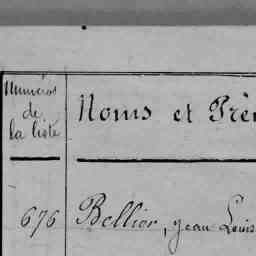 Numéros
de
la liste
Noms et Prén
676
Bellier, Jean Louis